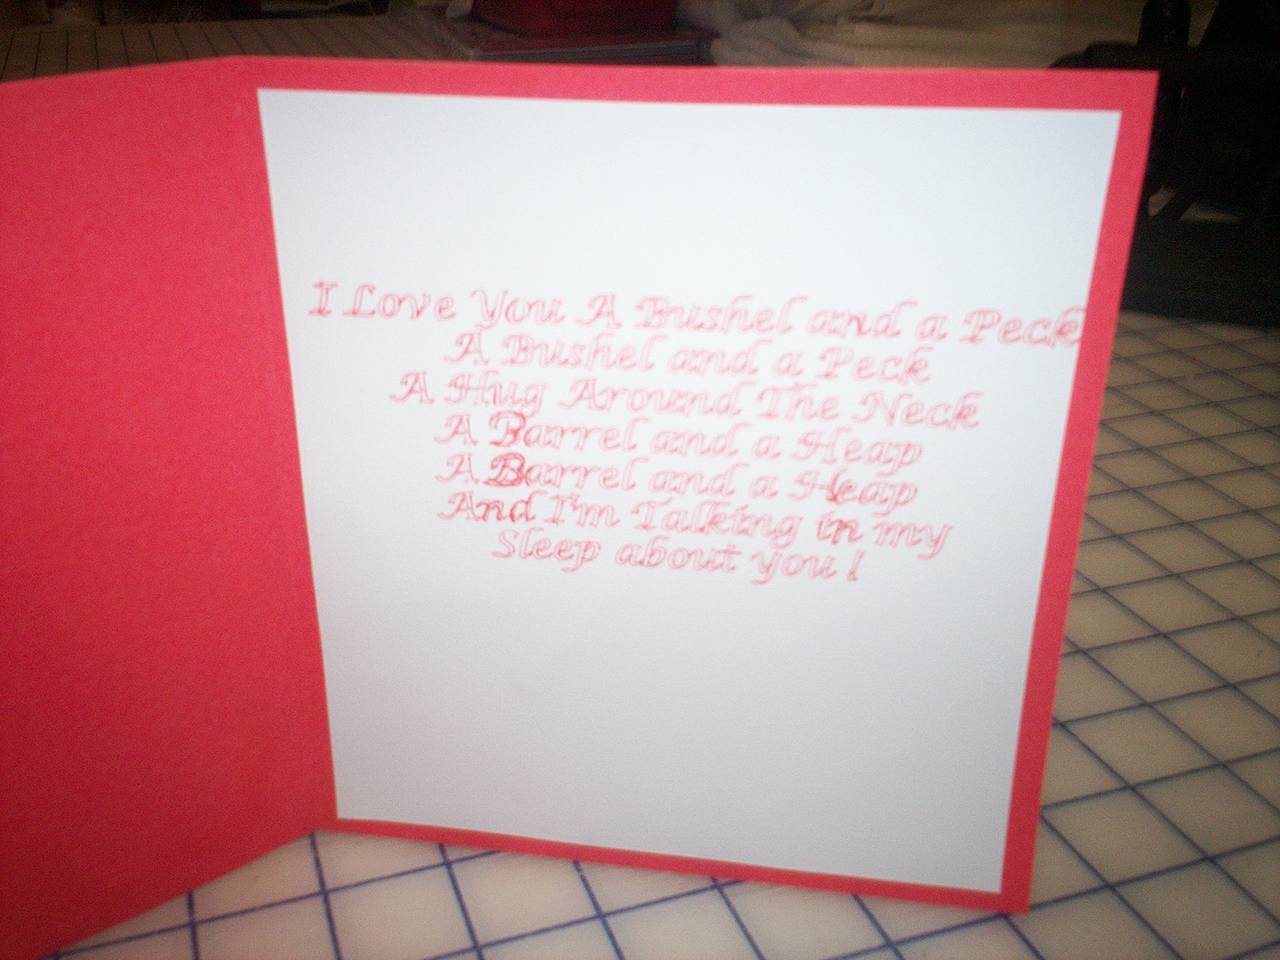 I Love You A Bushel and a Peck
A Bushel and a Peck
A Hug Around The Neck
A Barrel and a Heap
A Barrel and a Heap
And I'm Talking in my
Sleep about you !